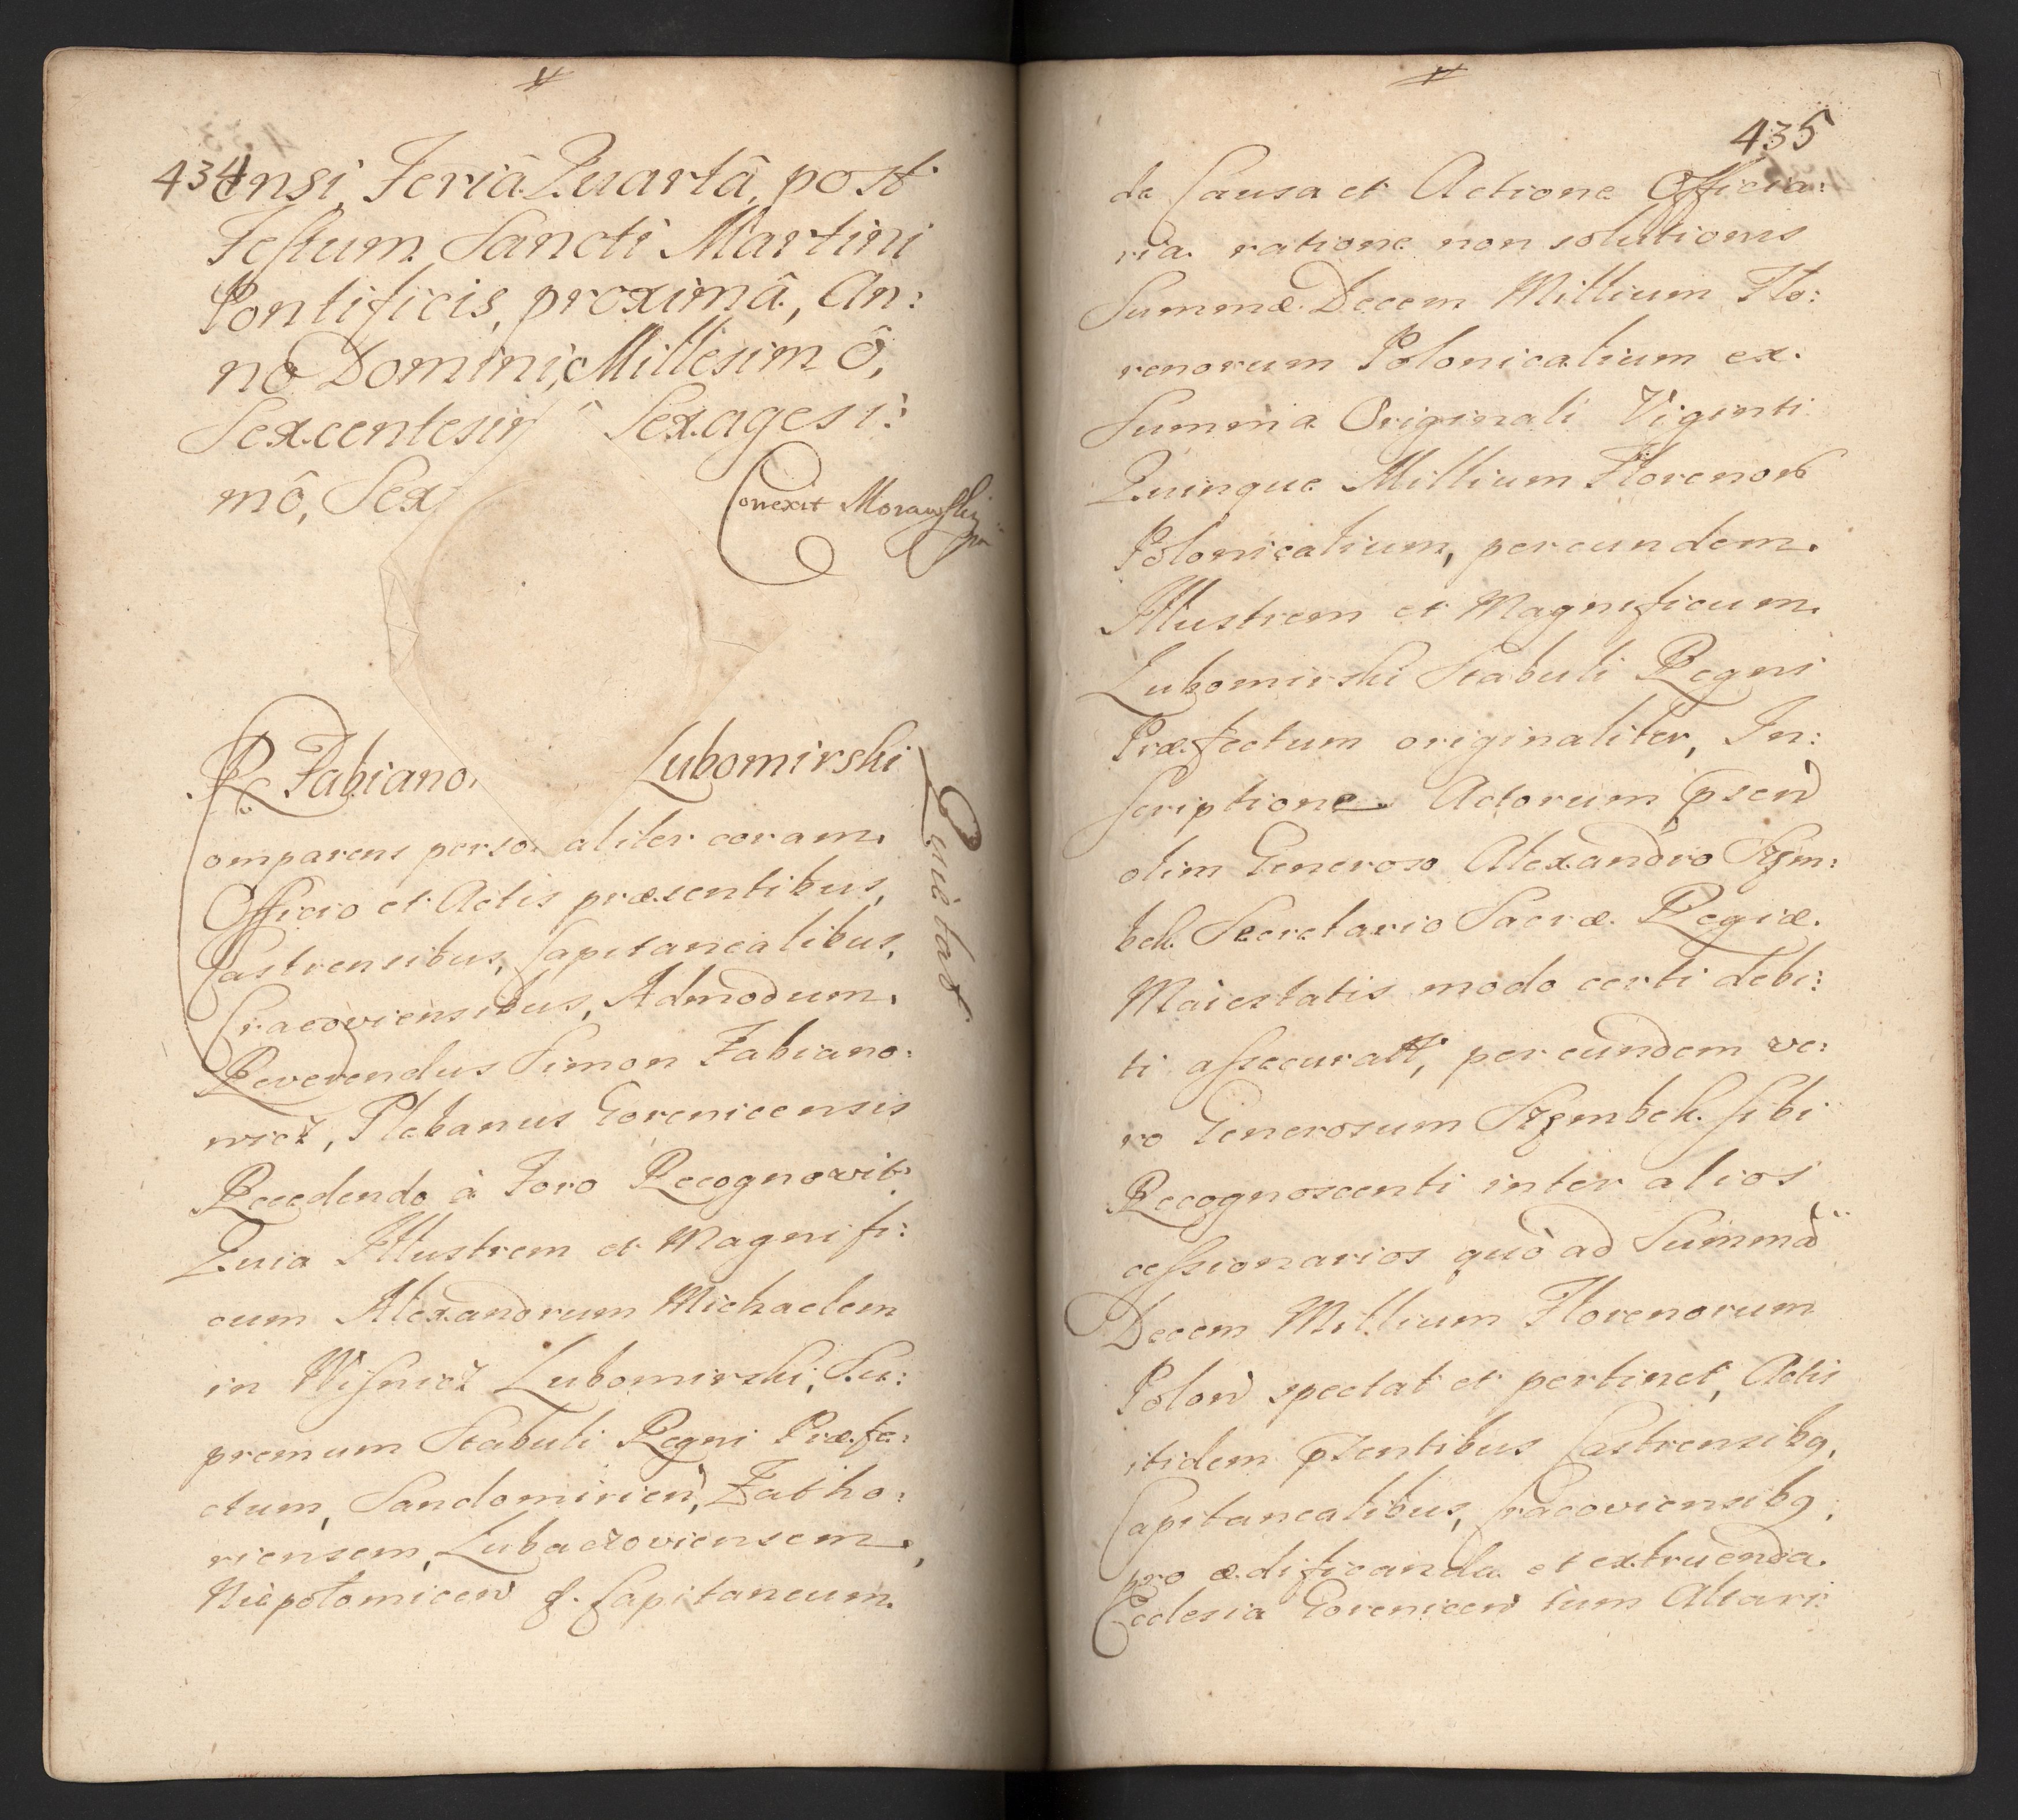 434
ensi, Feriâ Quartâ, post
Festum Sancti Martini
Pontificis, proximâ, An:
no Domini, Millesimô,
Sexcentesi Sexagesi:
mô, Sex
Correxit Morawski
Fabiano, Lubomirski
Quietat
omparens perso aliter coram
Officio et Actis præsentibus,
Castrensibus, Capitanealibus,
Cracoviensibus, Admodum
Reverendus Simon Fabiano:
wicz, Plebanus Gorenicensis
Recedendo à Foro Recognovit
Quia Illustrem et Magnifi:
cum Alexandrum Michaelem
in Wisnicz Lubomirski, Su:
premum Stabuli Regni Præfe:
ctum, Sandomirien, Zatho:
riensem, Lubaczoviensem,
Niepolomicen &. Capitaneum
435
de Causa et Actione Officia:
ria ratione non solutionis
Summæ Decem Millium Flo:
renorum Polonicalium ex
Summa Originali Viginti
Quinque Millium Florenor
Polonicalium, per eundem
Illustrem et Magnificum
Lubomirski Stabuli Regni
Præfectum originaliter, In:
scriptione Actorum psen
olim Generoso Alexandro Szem:
bek Secretario Sacræ Regiæ
Maiestatis modo certi debi:
ti assecurat, per eundem ve:
ro Generosum Szembek sibi
Recognoscenti inter alios
cessionarios quò ad Summã
Decem Millium Florenorum
Polon spectat et pertinet, Actis
itidem psentibus Castrensibq,
Capitanealibus, Cracoviensibq,
pro ædificanda et extruenda
Ecclesia Gorenicen tum Altari